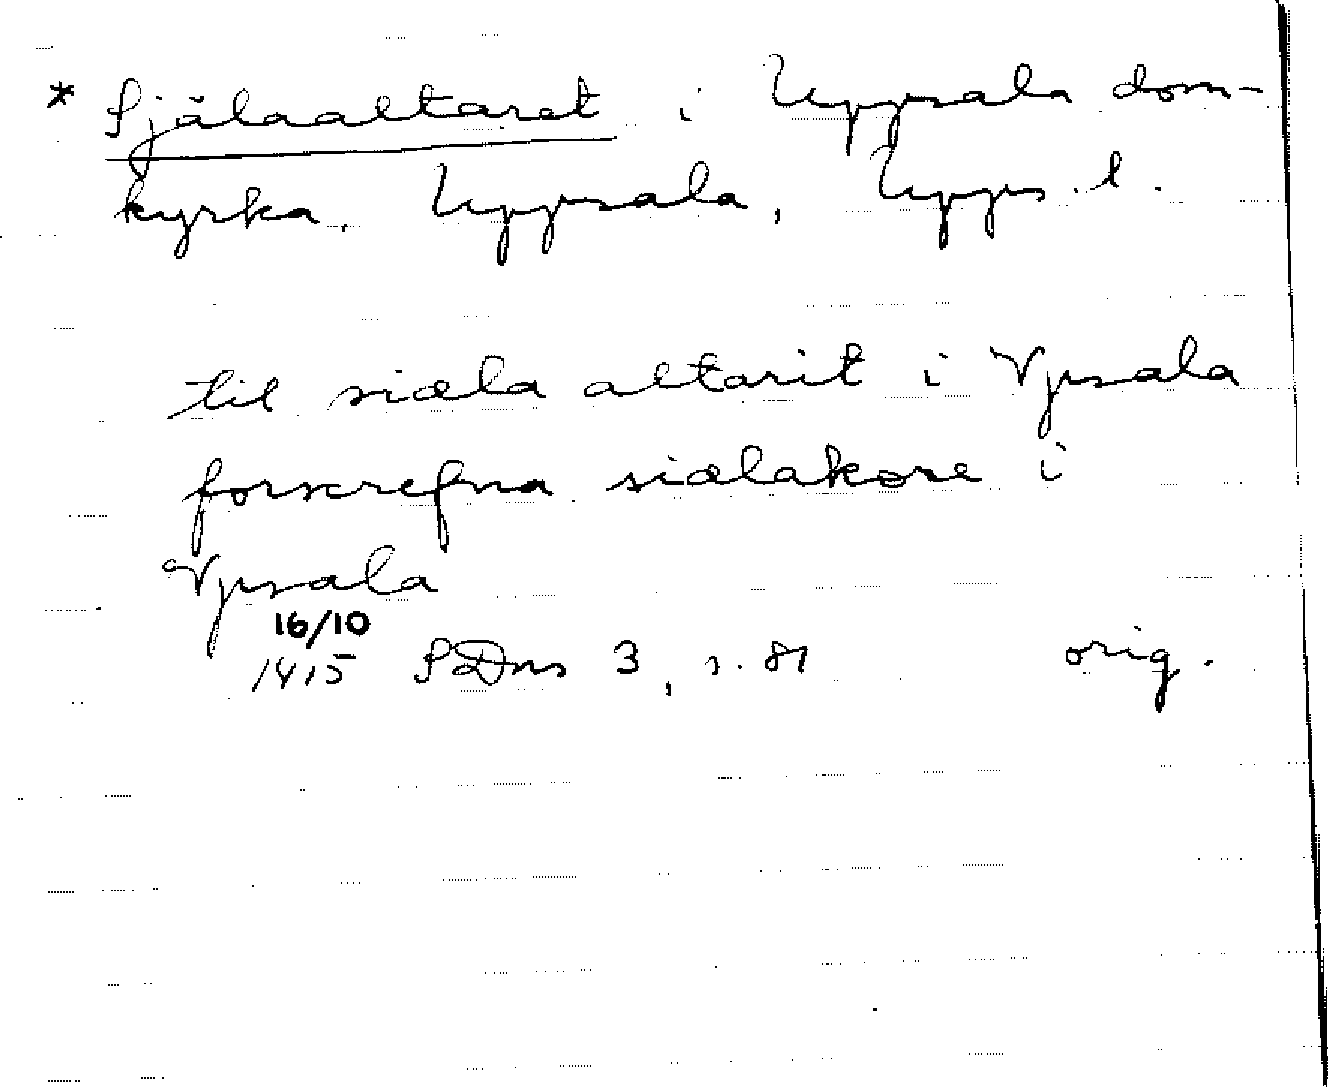 * Själaaltaret i Uppsala dom-
kyrka. Uppsala, Upps. l.
til siæla altarit i Vpsala
forscrefna siælakøre i
Vpsala
16/10
1415 SDns 3, s. 81 orig.